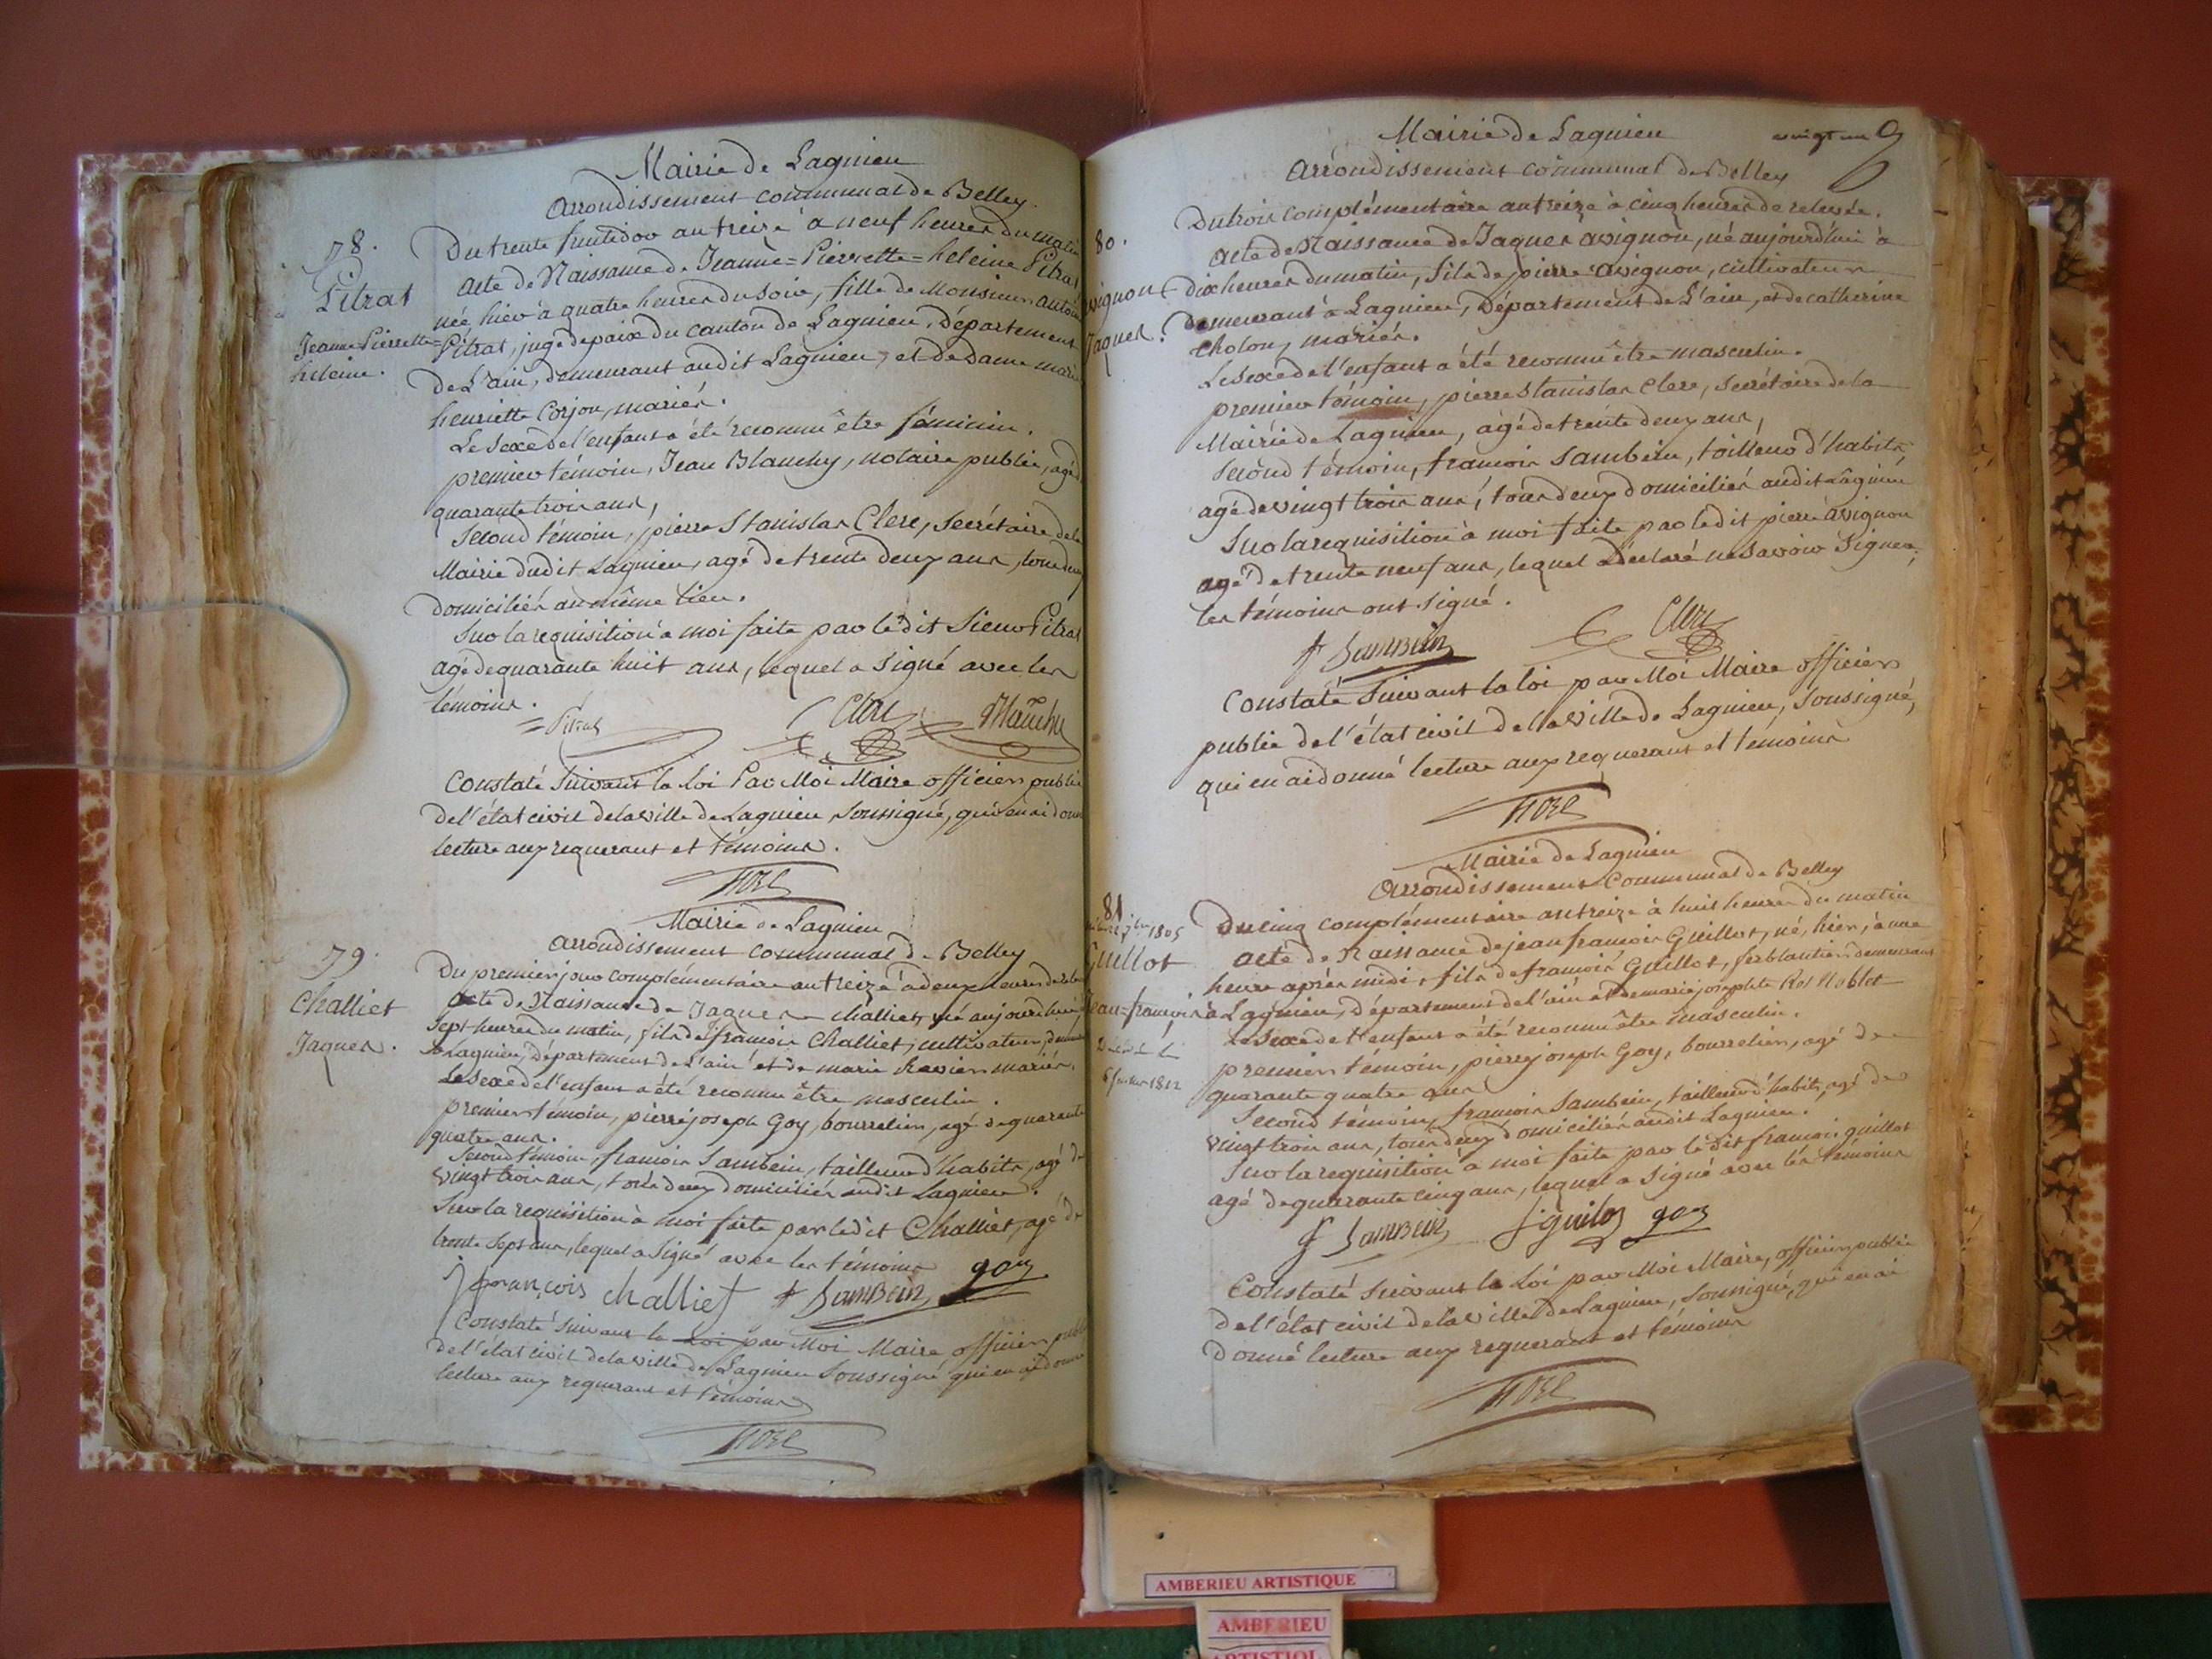 Mairie de Lagnieu
arrondissement communal de Belley.
78.
Pitrat
Jeanne Pierrette=
heleine.
Du trente fructidor an treize à neuf heures du matin
acte de Naissance de Jeanne=Pierrette=heleine Pitrat
née hier à quatre heures du soir, fille de Monsieur antoine
Pitrat, juge de paix du canton de Lagnieu, Département
de L'ain, demeurant audit Lagnieu, et de Dame marie
henriette Corjon, mariés.
Le Sexe de l'enfant a été reconnu être féminin.
premier témoin, Jean Blanchy, notaire public, agé de
quarante trois ans,
Second témoin, pierre Stanislas Clerc, Secrétaire de la
Mairie dudit Lagnieu, agé de trente deux ans, tous deux
domiciliés au même lieu.
Sur la requisition à moi faite par le dit Sieur Pitrat
agé de quarante huit ans, lequel a Signé avec les
témoins.
Pitrat Clerc Blanchy
Constaté Suivant la Loi Par Moi Maire officier public
de l'état civil de la ville de Lagnieu Soussigné, qui en ai donné
lecture aux requerant et témoins.
Mairie de Lagnieu
arrondissement communal de Belley
79.
Challiet
Jaques.
Du premier jour complémentaire an treize à deux heures de relevée
acte de Naissance de Jaques challiet, né aujourd'hui à
Sept heures du matin, fils de françois Challiet, cultivateur, demeurant
à Lagnieu, Département de L'ain et de marie Ravier mariés.
Le Sexe de l'enfant a été reconnu être masculin.
premier témoin, pierre joseph Goy, bourrelier, agé de quarante
quatre ans.
Second témoin, françois Sambein, tailleur d'habits, agé de
vingt trois ans, tous deux domiciliés audit Lagnieu.
Sur la requisition à moi faite par le dit Challiet, agé de
trente Sept ans, lequel a Signé avec les témoins
françois challiet f Sambein goy
Constaté Suivant la Loi par Moi Maire officier public
de l'état civil de la ville de Lagnieu Soussigné qui en ai donné
lecture aux requerant et témoins
Mairie de Lagnieu
vingt un
arrondissement communal de Belley
80.
avignon
Jaques.
Du trois complémentaire an treize à cinq heures de relevée.
acte de Naissance de Jaques avignon, né aujourd'hui à
dix heures du matin, fils de pierre avignon, cultivateur
demeurant à Lagnieu, Département de L'ain, et de catherine
cholon, mariés.
Le Sexe de l'enfant a été reconnu être masculin.
premier témoin, pierre Stanislas Clerc, Secrétaire de la
Mairie de Lagnieu, agé de trente deux ans,
Second témoin, françois Sambein, tailleur d'habits
agé de vingt trois ans, tous deux domiciliés audit Lagnieu
Sur la requisition à moi faite par le dit pierre avignon
agé de trente neuf ans, lequel a Déclaré ne Savoir Signer,
les témoins ont Signé.
f Sambein Clerc
Constaté Suivant la loi par Moi Maire officier
public de l'état civil de la ville de Lagnieu, Soussigné,
qui en ai donné lecture aux requerant et témoins
Mairie de Lagnieu
arrondissement Communal de Belley
81
1805
Guillot
jean-françois
1812
Du cinq complémentaire an treize à huit heures du matin
acte de Naissance de jean françois Guillot, né, hier, à une
heure après midi, fils de françois Guillot, ferblantier demeurant
à Lagnieu, département de l'ain et de marie josephte Noblet
Le Sexe de l'enfant a été reconnu être masculin.
premier témoin, pierre joseph Goy, bourrelier, agé de
quarante quatre ans
Second témoin, françois Sambein, tailleur d'habits, agé de
vingt trois ans, tous deux domiciliés audit Lagnieu.
Sur la requisition à moi faite par le dit françois guillot
agé de quarante cinq ans, lequel a Signé avec les témoins
f Sambein f guilot goy
Constaté Suivant la Loi par Moi Maire, officier public
de l'état civil de la ville de Lagnieu, Soussigné, qui en ai
donné lecture aux requerant et témoins
AMBERIEU ARTISTIQUE
AMBERIEU
ARTISTIQUE